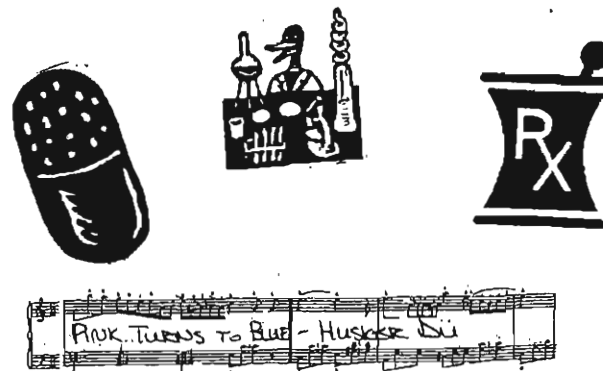 RX
PINK..TURNS TO BLUE - HUSKER DÜ